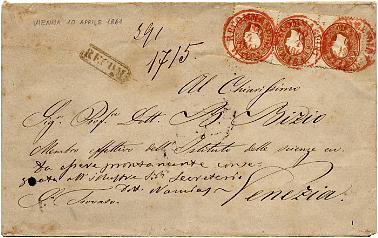 VIENNA 10 APRILE 1861
391
1715
RECOM
Al Chiarissimo
Sig. Profre Dott. B. Bizio
Membro effettivo dell'Istituto delle scienze ec.
Da essere prontamente conse-
gnata all'illustre Sig. Secretario
Dott. Namias
Venezia.